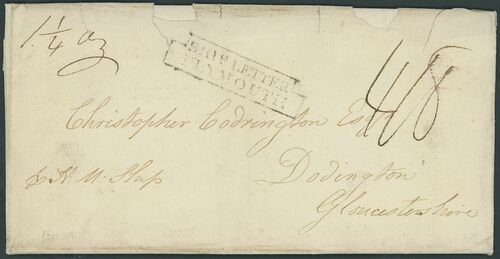 1 1/4 oz
SHIP LETTER
PLYMOUTH
4/8
Christopher Codrington Esqr
Dodington
Gloucestershire
p H. M. Ship